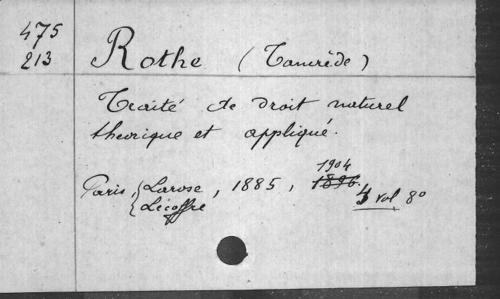 475
213
Rothe (Tancrède)
Traité de droit naturel
théorique et appliqué.
Paris, { Larose, 1885, 1904
{ Lecoffre 1896.
4 vol 8°